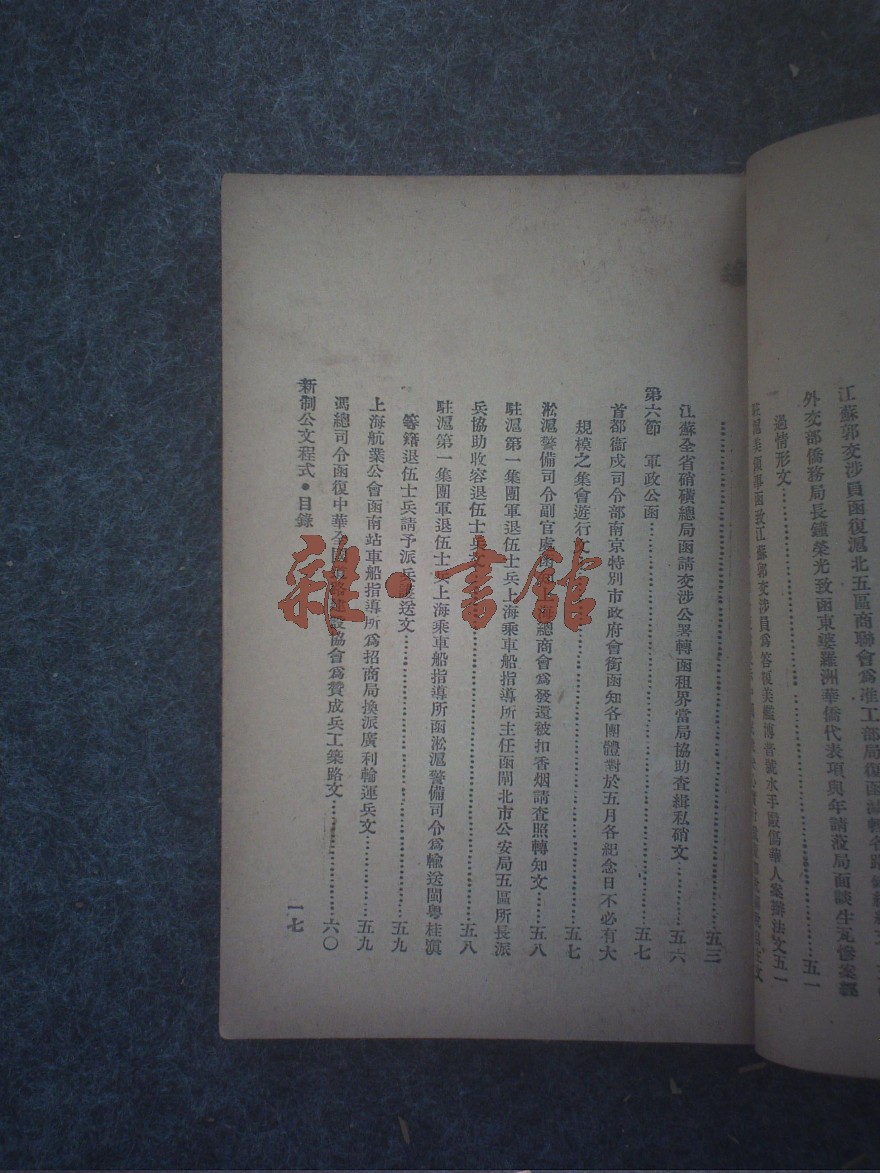 江蘇郭交涉員函復滬北五區商聯會爲准工部局復函
外交部僑務局長鍾榮光致函東婆羅洲華僑代表項與年請蒞局面談生瓦慘案經
過情形文……五一
江蘇郭交涉員爲答復美艦
水手毆傷華人案辦法文五一
……五三
江蘇全省硝磺總局函請交涉公署轉函租界當局協助查緝私硝文……五六
第六節 軍政公函……五七
首都衞戍司令部南京特別市政府會銜函知各團體對於五月各紀念日不必有大
規模之集會遊行文……五七
淞滬警備司令副官處函總商會爲發還被扣香烟請查照轉知文……五八
駐滬第一集團軍退伍士兵上海乘車船指導所主任函閘北市公安局五區所長派
兵協助收容退伍士兵……五八
駐滬第一集團軍退伍士兵上海乘車船指導所函淞滬警備司令爲輸送閩粵桂滇
等籍退伍士兵請予派兵送文……五九
上海航業公會函南站車船指導所爲招商局換派廣利輪運兵文……五九
馮總司令函復中華全國協會爲贊成兵工築路文……六〇
新制公文程式•目錄
一七
雜•書館